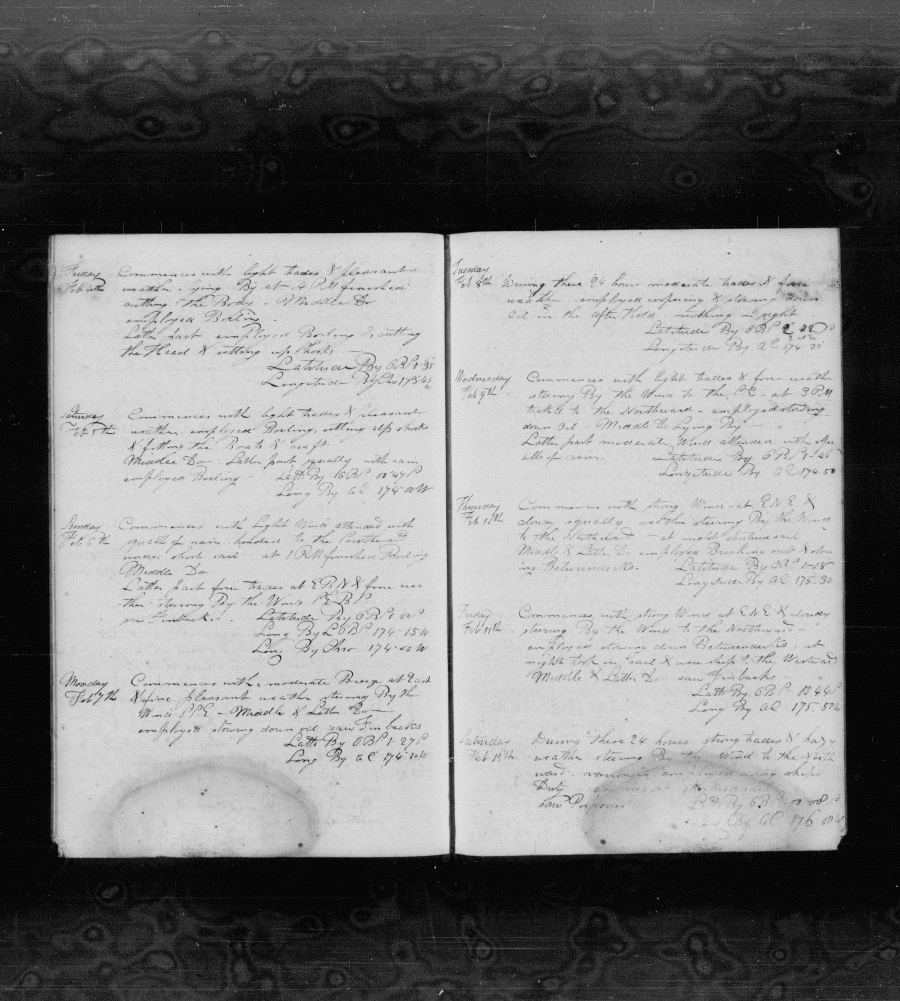 Friday Commences with light trades & pleasant
Feb 4th weather. lying By at 4 P.M finished
cutting the Body. Middle Do
employed Boiling.
Latter part employed Boiling & cutting
the Head & setting up Shooks
Latitude By OBS 1-35
Longitude By Chro 173 45
Saturday Commences with light trades & pleasant
Feb 5th weather employed Boiling, setting up shooks
& fitting the Boats & craft
Middle Do. Latter part squally with rain
employed Boiling - Latt By OBS 00 47 S
Long By AC 174 00 W
Sunday Commences with Light Winds attended with
Feb 6th squalls of rain. headed to the
under short sail at 1 P.M finished Boiling
Middle Do
Latter part fine trades at E.N.E & fine wea
ther steering By the Wind
saw Finbacks. Latitude By OBS 00 S
Long By L OBS 174-15 W
Long By Chro 174-00 W
Monday Commences with moderate Breeze at East
Feb 7th & fine pleasant weather steering By the
Wind - Middle & Latter Do
employed stowing down oil saw Finbacks
Latt By OBS 1-27 S
Long By AC 174
Tuesday
Feb 8th During these 24 hours moderate trades & fine
weather employed coopering & stowing down
Oil in the after Hold, nothing in sight
Latitude By OBS
Longitude By AC 174
Wednesday Commences with light trades & fine weather
Feb 9th steering By the Wind to the S.E. at 3 P.M
tacked to the Northward - employed stowing
down Oil - Middle Do Lying By
Latter part moderate Wind attended with squ
alls of rain. Latitude By OBS
Longitude By AC 174 50
Thursday Commences with strong Wind at E.N.E &
Feb 10th cloudy squally weather steering By the Wind
to the Northward - at night shortened sail
Middle & Latter Do employed Breaking out & stow
ing Betweendecks. Latitude By OBS 1-18
Longitude By AC 175.30
Friday Commences with strong Wind at E.N.E & cloudy
Feb 11th steering By the Wind to the Northward -
employed stowing down Betweendecks. at
night took in sail & wore ship to the Westward
Middle & Latter Do saw Finbacks
Latt By OBS 00 44 S
Long By AC 175.50 W
Saturday During these 24 hours strong trades & hazy
Feb 12th weather steering By the Wind to the North
ward. employed ships
Duty
saw Porpoises Latt By OBS 00-08 S
Long By AC 176 00 W